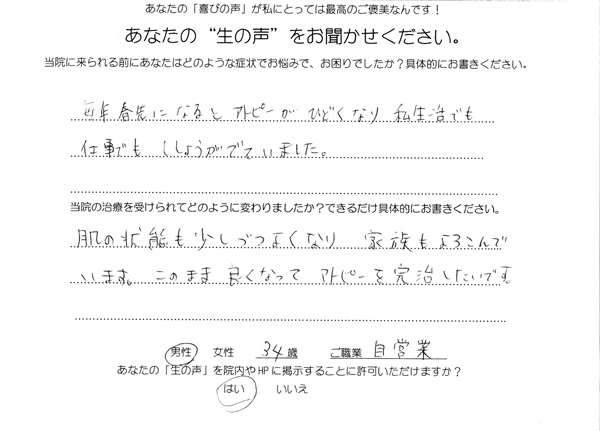 あなたの「喜びの声」が私にとっては最高のご褒美なんです！
あなたの“生の声”をお聞かせください。
当院に来られる前にあなたはどのような症状でお悩みで、お困りでしたか？具体的にお書きください。
毎年春先になるとアトピーがひどくなり私生活でも
仕事でもししょうがでていました。
当院の治療を受けられてどのように変わりましたか？できるだけ具体的にお書きください。
肌の状態も少しづつよくなり 家族もよろこんで
います。このまま良くなってアトピーを完治したいです。
男性 女性 34歳 ご職業 自営業
あなたの「生の声」を院内やHPに掲示することに許可いただけますか？
はい いいえ